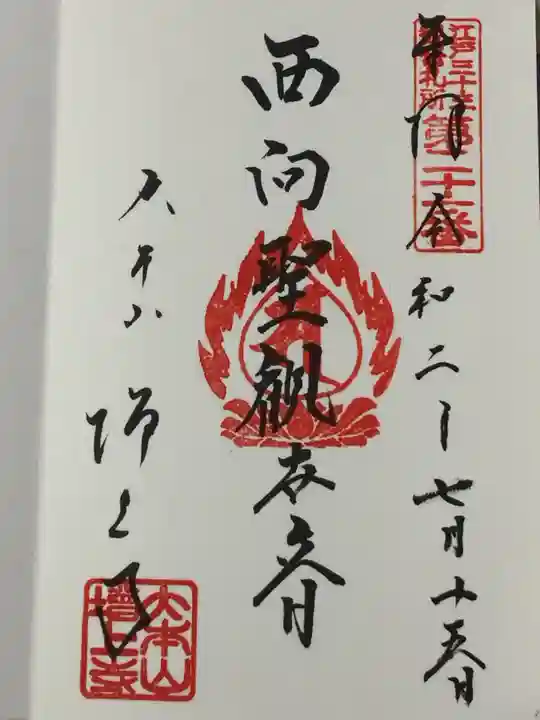 江戸三十三観音札所第二十一番
奉拝 令和二年七月十五日
西向聖観世音
大本山 増上寺
大本山増上寺